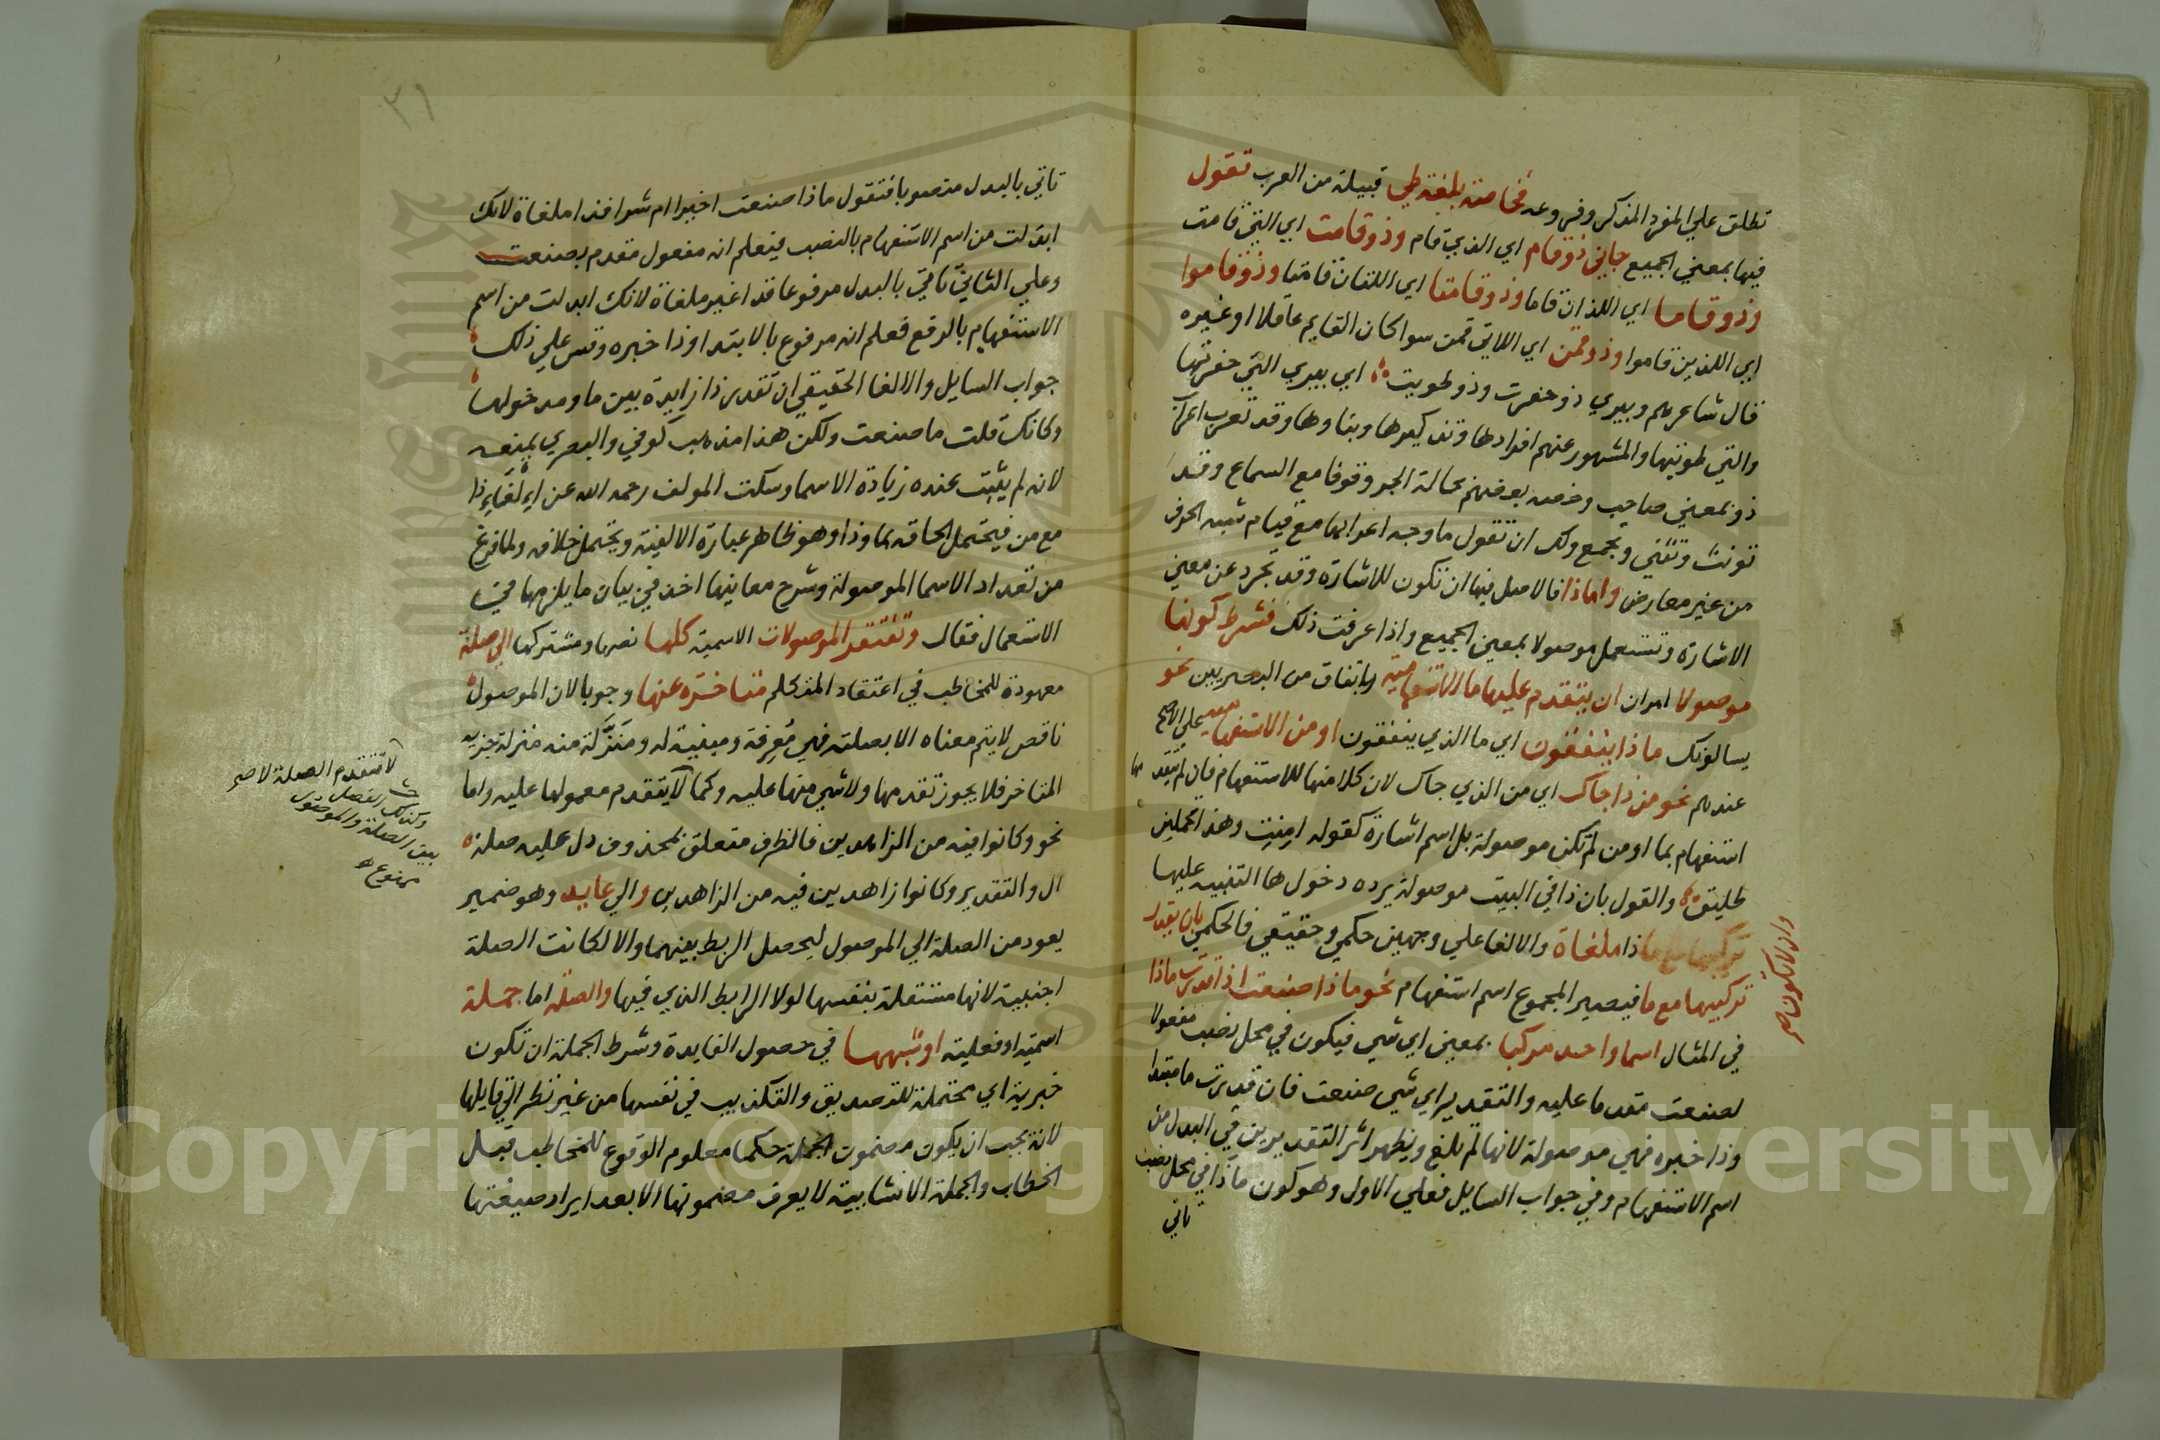 تطلق علي المفرد المذكر وفروعه فخاصة بلغة طي قبيلة من العرب تقول
فيها بمعني الجميع جاني ذو قام اي الذي قام وذو قامت اي التي قامت
وذو قاما اي اللذان قاما وذو قامتا اي اللتان قامتا وذو قاموا
اي اللذين قاموا وذو قمن اي اللاتي قمن سوا كان القايم عاقلا او غيره
قال شاعرهم وبيري ذو حفرت وذو طويت اي بيري التي حفرتها
والتي طويتها والمشهور عنهم افرادها وتذكيرها وبناوها وقد تعرب اعراب
ذو بمعني صاحب وخصه بعضهم بحالة الجر وقوفا مع السماع وقد
تونث وتثني وتجمع ولك ان تقول ما وجه اعرابها مع قيام شبه الحرف
من غير معارض واما ذا فالاصل فيها ان تكون للاشارة وقد تجرد عن معني
الاشارة وتستعمل موصولا بمعني الجميع واذا عرفت ذلك فشرط كونها
موصولا امران ان يتقدم عليها ما الاستفهامية باتفاق من البصريين نحو
يسالونك ماذا ينفقون اي ما الذي ينفقون او من الاستفهامية علي الاصح
عندهم نحو من ذا جاك اي من الذي جاك لان كلا منها للاستفهام فان لم يتقدمها
استفهام بما او من لم تكن موصولة بل اسم اشارة كقوله امنت وهذا تحملين
طليق والقول بان ذا في البيت موصولة يرده دخول ها التنبيه عليها
وان لا تكون صح
ذا ملغاة والالغا علي وجهين حكمي وحقيقي فالحكمي بان يقدر
تركيبها مع ما فيصير المجموع اسم استفهام نحو ماذا صنعت اذا قدرت ماذا
في المثال اسما واحد مركبا بمعني اي شي فيكون في محل نصب مفعولا
لصنعت مقدما عليه والتقدير اي شي صنعت فان قدرت ما مبتدا
وذا خبره فهي موصولة لانها لم تلغ ويظهر اثر التقديرين في البدل من
اسم الاستفهام وفي جواب السايل فعلي الاول وهو كون ماذا في محل نصب
تاتي
٣١
تاتي بالبدل منصوبا فتقول ماذا صنعت اخيرا ام شرا فذا ملغاة لانك
ابدلت من اسم الاستفهام بالنصب فيعلم انه مفعول مقدم بصنعت
وعلي الثاني تاتي بالبدل مرفوعا فذا غير ملغاة لانك ابدلت من اسم
الاستفهام بالرفع فعلم انه مرفوع بالابتدا وذا خبره وقس علي ذلك
جواب السايل والالغا الحقيقي ان تقدر ذا زايدة بين ما ومدخولها
وكانك قلت ما صنعت ولكن هذا مذهب كوفي والبصري يمنعه
لانه لم يثبت عنده زيادة الاسما وسكت المولف رحمه الله عن الغاء ذا
مع من فيحتمل الحاقه بما وذا وهو ظاهر عبارة الالفية ويحتمل خلافه ولما فرغ
من تعداد الاسما الموصولة وشرح معانيها اخذ في بيان ما يلزمها في
الاستعمال فقال وتفتقر الموصولات الاسمية كلها نصها ومشتركها الي صلة
معهودة للمخاطب في اعتقاد المتكلم متاخرة عنها وجوبا لان الموصول
ناقص لا يتم معناه الا بصلته فهي معرفة ومبنية له ومنزلة منه منزلة جزيه
المتاخر فلا يجوز تقدمها ولا شي منها عليه وكما لا يتقدم معمولها عليه واما
نحو وكانوا فيه من الزاهدين فالظرف متعلق بمحذوف دل عليه صلة
ال والتقدير وكانوا زاهدين فيه من الزاهدين والي عايد وهو ضمير
يعود من الصلة الي الموصول ليحصل الربط بينهما والا لكانت الصلة
اجنبية لانها مستقلة بنفسها لولا الرابط الذي فيها والصلة اما جملة
اسمية او فعلية او شبهها في حصول الفايدة وشرط الجملة ان تكون
خبرية اي محتملة للتصديق والتكذيب في نفسها من غير نظر الي قايلها
لانه يجب ان يكون مضمون الجملة حكما معلوم الوقوع للمخاطب قبل
الخطاب والجملة الانشايية لا يعرف مضمونها الا بعد ايراد صيغتها
لا تتقدم الصلة لا صح
وكذلك الفصل
بين الصلة والموصول
ممنوع
Copyright © King Saud University